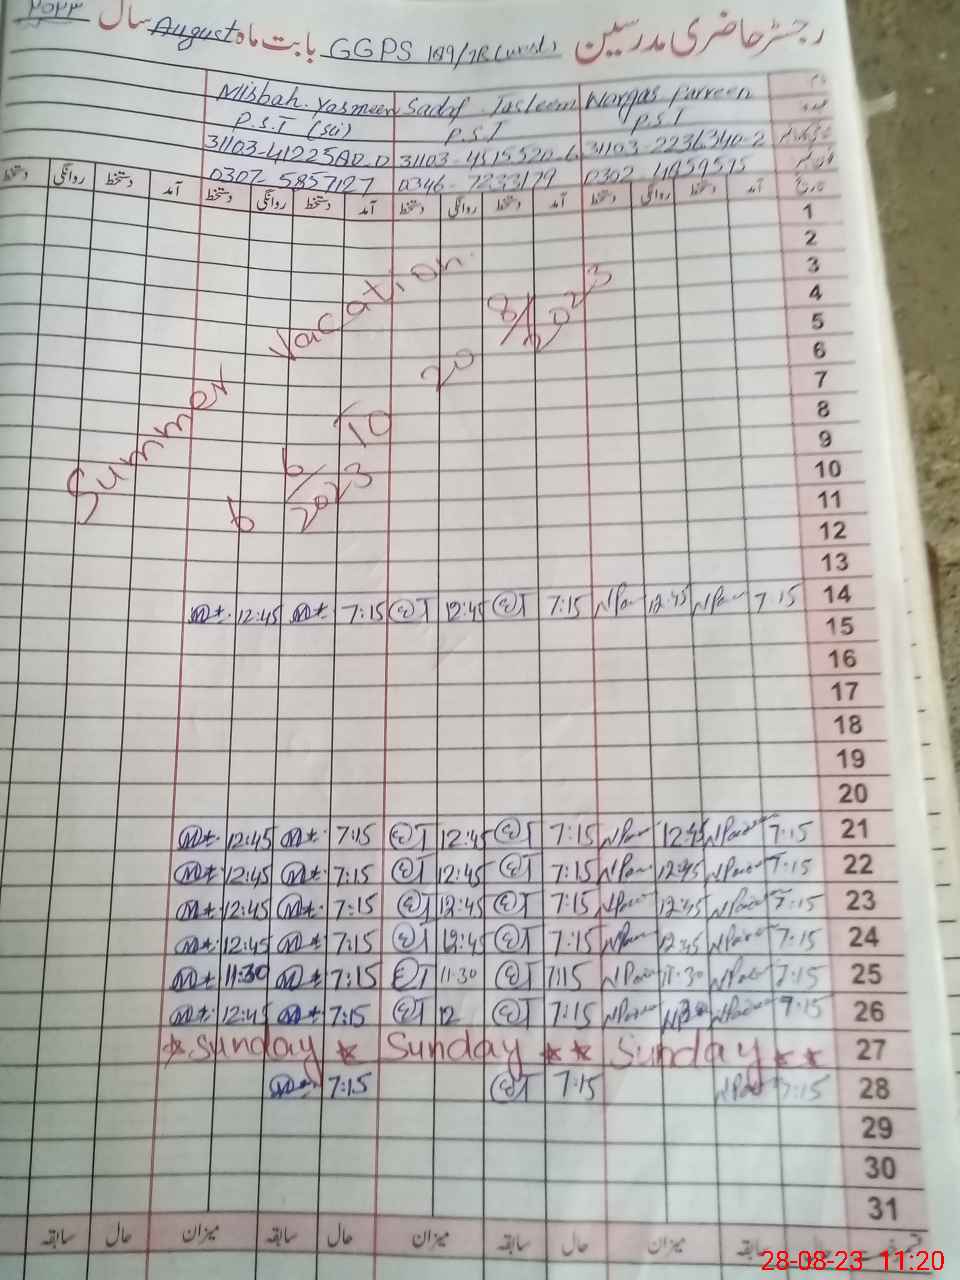 رجسٹر حاضری مدرسین GGPS 189/7R بابت ماہ August سال ۲۰۲۳
نام Nargas Parveen Sadaf Tasleem Misbah Yasmeen
عہدہ P.S.T P.S.T P.S.T (Sci)
31103-2236340-2
فون نمبر 0346-7233179 0307-5857127
تاریخ آمد دستخط روانگی دستخط آمد دستخط روانگی دستخط آمد دستخط روانگی دستخط آمد دستخط روانگی دستخط
1
2
3
4
5
6
7
8
9
10
11
12
13
Summer Vacation
6 6/2023 TO 20 8/2023
14 7:15 12:45 7:15 12:45 7:15 12:45
15
16
17
18
19
20
21 7:15 12:45 7:15 12:45 7:15 12:45
22 7:15 12:45 7:15 12:45 7:15 12:45
23 7:15 12:45 7:15 12:45 7:15 12:45
24 7:15 12:45 7:15 12:45 7:15 12:45
25 7:15 11:30 7:15 11:30 7:15 11:30
26 7:15 7:15 12 7:15 12:45
27 Sunday Sunday Sunday
28 7:15 7:15 7:15
29
30
31
حال سابقہ میزان حال سابقہ میزان حال سابقہ میزان حال سابقہ
28-08-23 11:20